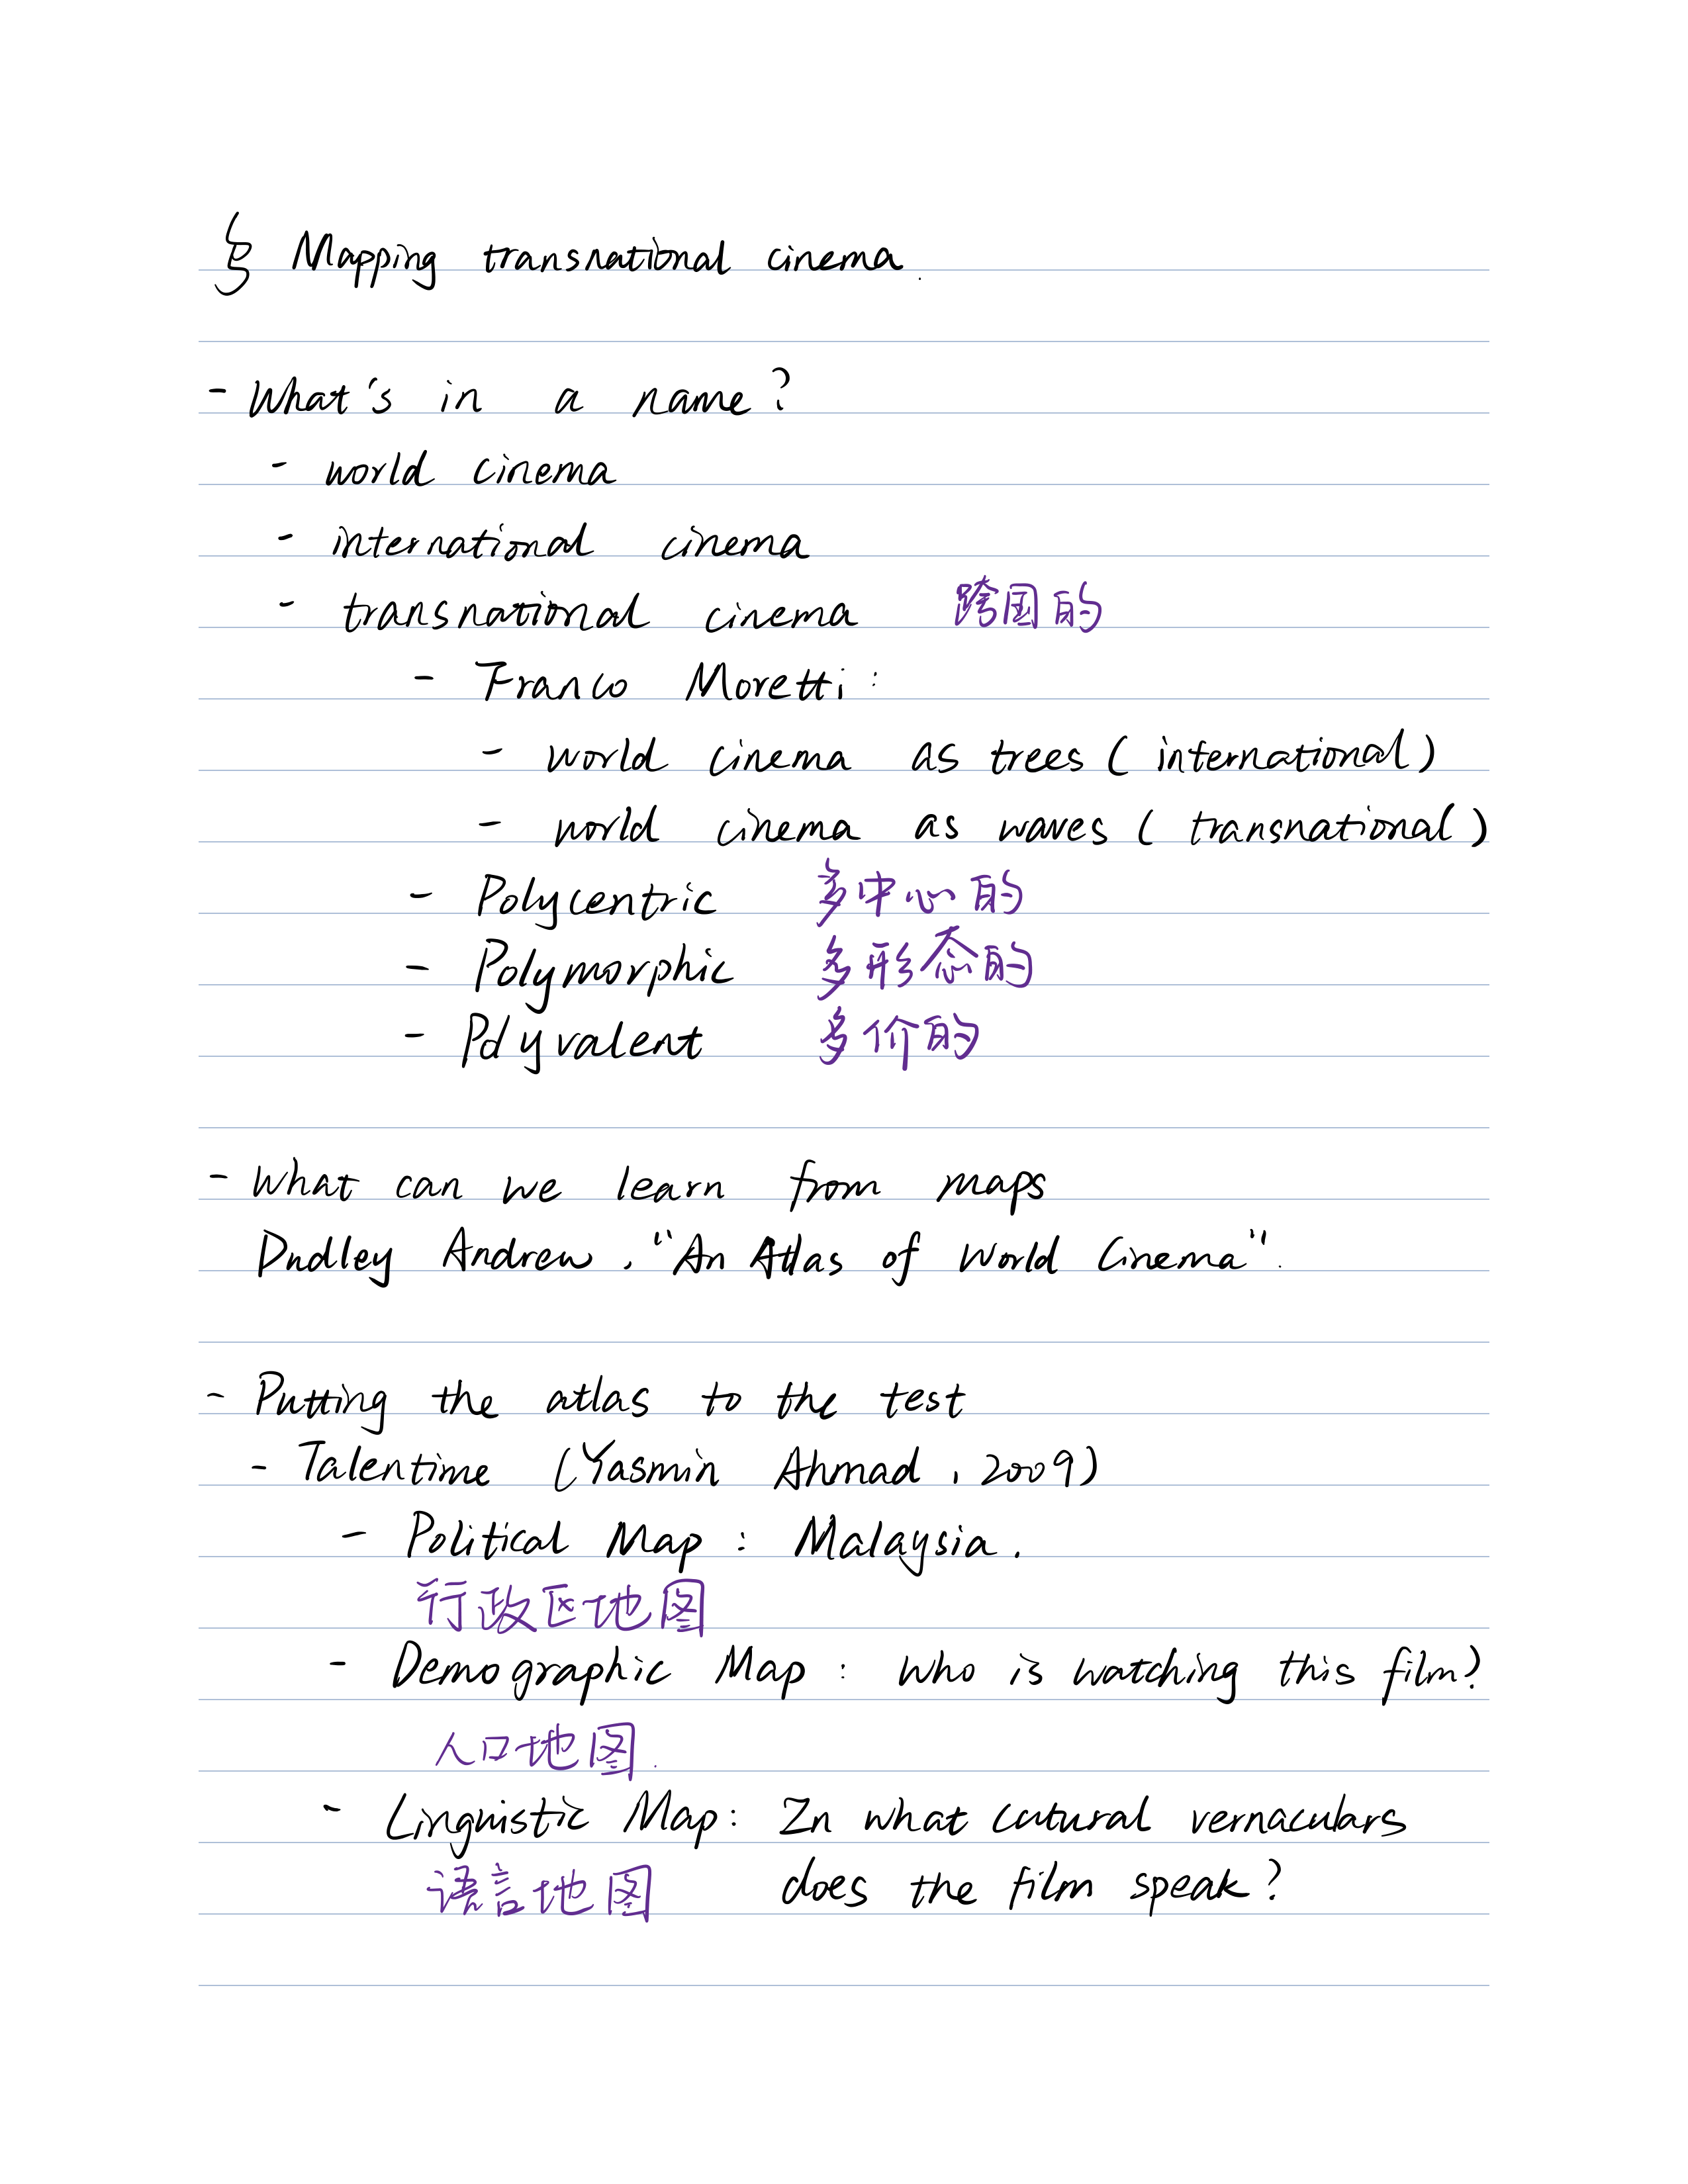 § Mapping transnational cinema.
- What's in a name?
- world cinema
- international cinema
- transnational cinema 跨国的
- Franco Moretti:
- world cinema as trees (international)
- world cinema as waves (transnational)
- Polycentric 多中心的
- Polymorphic 多形态的
- Polyvalent 多价的
- What can we learn from maps
Dudley Andrew, "An Atlas of World Cinema".
- Putting the atlas to the test
- Talentime (Yasmin Ahmad, 2009)
- Political Map: Malaysia.
行政区地图
- Demographic Map: Who is watching this film?
人口地图.
- Linguistic Map: In what cutural vernaculars
语言地图 does the film speak?